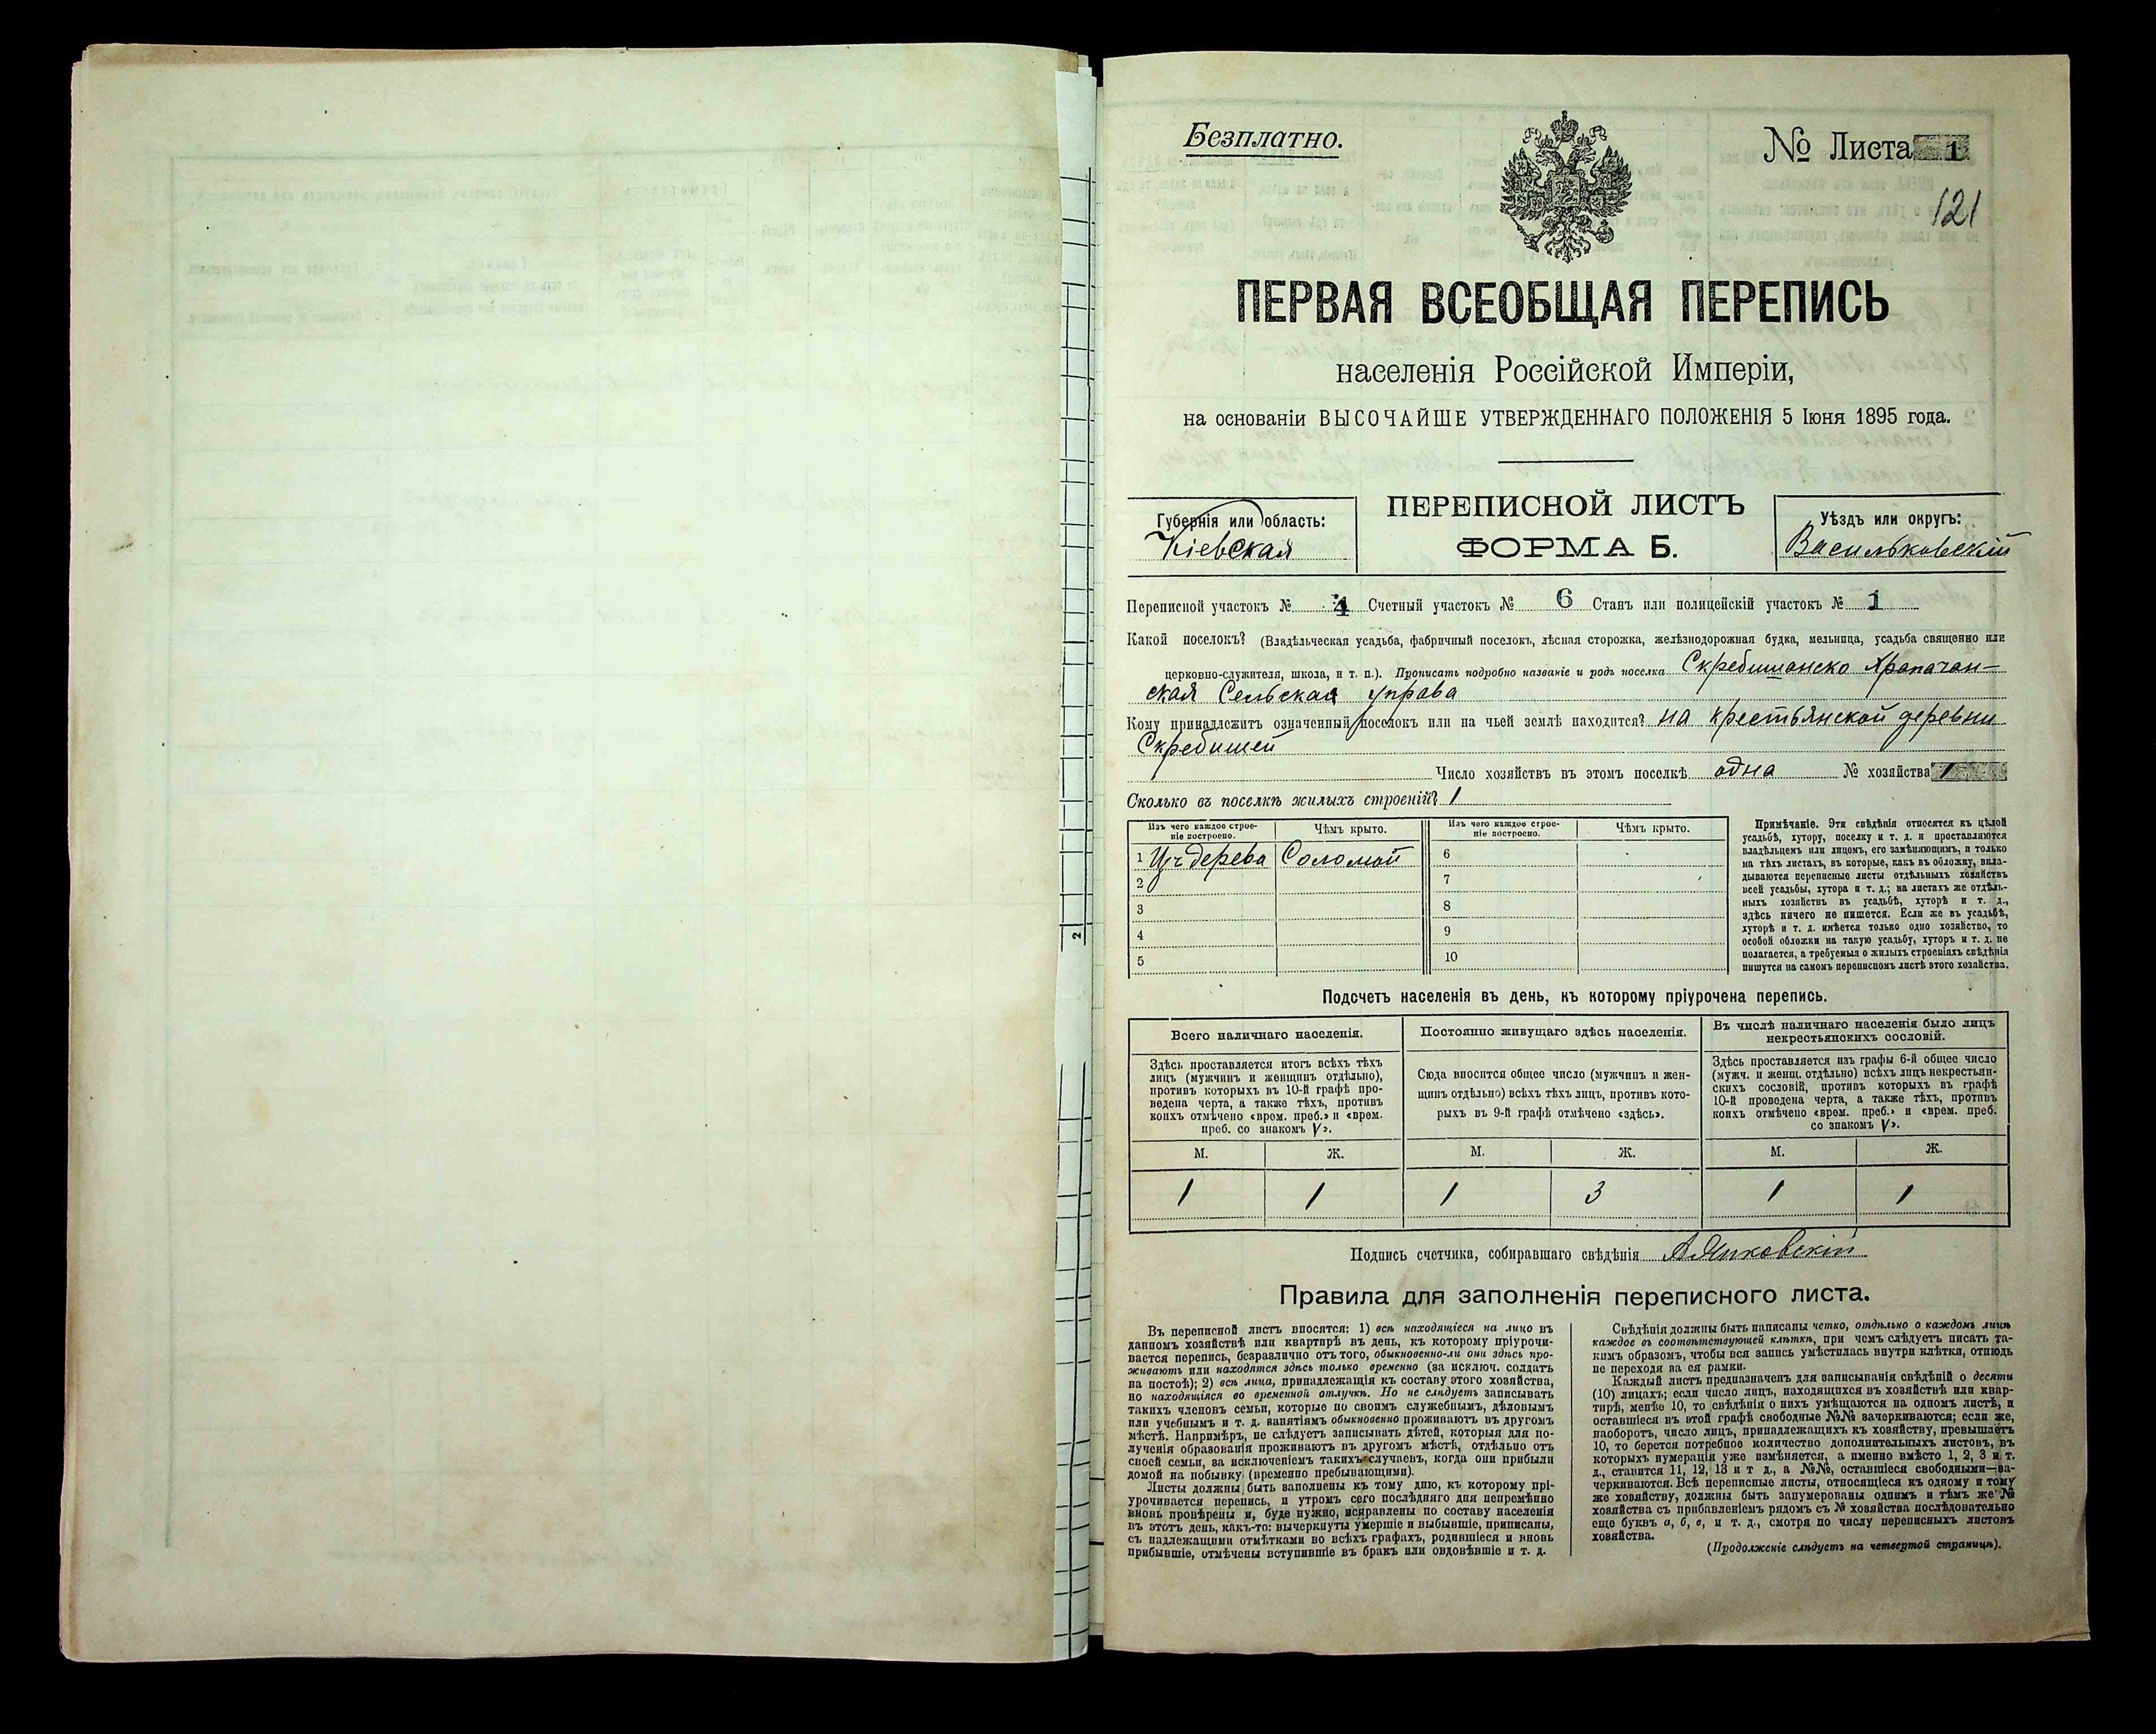 Безплатно.
№ Листа 1
121
ПЕРВАЯ ВСЕОБЩАЯ ПЕРЕПИСЬ
населенія Россійской Имперіи,
на основаніи ВЫСОЧАЙШЕ УТВЕРЖДЕННАГО ПОЛОЖЕНІЯ 5 Іюня 1895 года.
Губернія или область:
Кіевская
ПЕРЕПИСНОЙ ЛИСТЪ
ФОРМА Б.
Уѣздъ или округъ:
Васильковскій
Переписной участокъ № 4 Счетный участокъ № 6 Станъ или полицейскій участокъ № 1
Какой поселокъ? (Владѣльческая усадьба, фабричный поселокъ, лѣсная сторожка, желѣзнодорожная будка, мельница, усадьба священно или
церковно-служителя, школа, и т. п.). Прописать подробно названіе и родъ поселка Скребишанско Храпачан-
ская Сельская управа
Кому принадлежитъ означенный поселокъ или на чьей землѣ находится? на крестьянской деревни
Скребишей
Число хозяйствъ въ этомъ поселкѣ одна № хозяйства 1
Сколько въ поселкѣ жилыхъ строеній? 1
Изъ чего каждое строе-
ніе построено.
Чѣмъ крыто.
Изъ чего каждое строе-
ніе построено.
Чѣмъ крыто.
1 Изъ дерева Соломой
2
3
4
5
6
7
8
9
10
Примѣчаніе. Эти свѣдѣнія относятся къ цѣлой
усадьбѣ, хутору, поселку и т. д. и проставляются
владѣльцемъ или лицомъ, его замѣняющимъ, и только
на тѣхъ листахъ, въ которые, какъ въ обложку, вкла-
дываются переписные листы отдѣльныхъ хозяйствъ
всей усадьбы, хутора и т. д.; на листахъ же отдѣль-
ныхъ хозяйствъ въ усадьбѣ, хуторѣ и т. д.,
здѣсь ничего не пишется. Если же въ усадьбѣ,
хуторѣ и т. д. имѣется только одно хозяйство, то
особой обложки на такую усадьбу, хуторъ и т. д. не
полагается, а требуемыя о жилыхъ строеніяхъ свѣдѣнія
пишутся на самомъ переписномъ листѣ этого хозяйства.
2
Подсчетъ населенія въ день, къ которому пріурочена перепись.
Всего наличнаго населенія.
Здѣсь проставляется итогъ всѣхъ тѣхъ
лицъ (мужчинъ и женщинъ отдѣльно),
противъ которыхъ въ 10-й графѣ про-
ведена черта, а также тѣхъ, противъ
коихъ отмѣчено «врем. преб.» и «врем.
преб. со знакомъ V».
М. Ж.
1 1
Постоянно живущаго здѣсь населенія.
Сюда вносится общее число (мужчинъ и жен-
щинъ отдѣльно) всѣхъ тѣхъ лицъ, противъ кото-
рыхъ въ 9-й графѣ отмѣчено «здѣсь».
М. Ж.
1 3
Въ числѣ наличнаго населенія было лицъ
некрестьянскихъ сословій.
Здѣсь проставляется изъ графы 6-й общее число
(мужч. и женщ. отдѣльно) всѣхъ лицъ некрестьян-
скихъ сословій, противъ которыхъ въ графѣ
10-й проведена черта, а также тѣхъ, противъ
коихъ отмѣчено «врем. преб.» и «врем. преб.
со знакомъ V».
М. Ж.
1 1
Подпись счетчика, собиравшаго свѣдѣнія
Правила для заполненія переписного листа.
Въ переписной листъ вносятся: 1) всѣ находящіеся на лицо въ
данномъ хозяйствѣ или квартирѣ въ день, къ которому пріурочи-
вается перепись, безразлично отъ того, обыкновенно-ли они здѣсь про-
живаютъ или находятся здѣсь только временно (за исключ. солдатъ
на постоѣ); 2) всѣ лица, принадлежащія къ составу этого хозяйства,
но находящіяся во временной отлучкѣ. Но не слѣдуетъ записывать
такихъ членовъ семьи, которые по своимъ служебнымъ, дѣловымъ
или учебнымъ и т. д. занятіямъ обыкновенно проживаютъ въ другомъ
мѣстѣ. Напримѣръ, не слѣдуетъ записывать дѣтей, которыя для по-
лученія образованія проживаютъ въ другомъ мѣстѣ, отдѣльно отъ
своей семьи, за исключеніемъ такихъ случаевъ, когда они прибыли
домой на побывку (временно пребывающими).
Листы должны быть заполнены къ тому дню, къ которому прі-
урочивается перепись, и утромъ сего послѣдняго дня непремѣнно
вновь провѣрены и, буде нужно, исправлены по составу населенія
въ этотъ день, какъ-то: вычеркнуты умершіе и выбывшіе, приписаны,
съ надлежащими отмѣтками во всѣхъ графахъ, родившіеся и вновь
прибывшіе, отмѣчены вступившіе въ бракъ или овдовѣвшіе и т. д.
Свѣдѣнія должны быть написаны четко, отдѣльно о каждомъ лицѣ
каждое въ соотвѣтствующей клѣткѣ, при чемъ слѣдуетъ писать та-
кимъ образомъ, чтобы вся запись умѣстилась внутри клѣтки, отнюдь
не переходя за ея рамки.
Каждый листъ предназначенъ для записыванія свѣдѣній о десяти
(10) лицахъ; если число лицъ, находящихся въ хозяйствѣ или квар-
тирѣ, менѣе 10, то свѣдѣнія о нихъ умѣщаются на одномъ листѣ, и
оставшіеся въ этой графѣ свободные №№ зачеркиваются; если же,
наоборотъ, число лицъ, принадлежащихъ къ хозяйству, превышаетъ
10, то берется потребное количество дополнительныхъ листовъ, въ
которыхъ нумерація уже измѣняется, а именно вмѣсто 1, 2, 3 и т.
д., ставится 11, 12, 13 и т д., а №№, оставшіеся свободными—за-
черкиваются. Всѣ переписные листы, относящіеся къ одному и тому
же хозяйству, должны быть занумерованы однимъ и тѣмъ же №
хозяйства съ прибавленіемъ рядомъ съ № хозяйства послѣдовательно
еще буквъ а, б, в, и т. д., смотря по числу переписныхъ листовъ
хозяйства.
(Продолженіе слѣдуетъ на четвертой страницѣ).